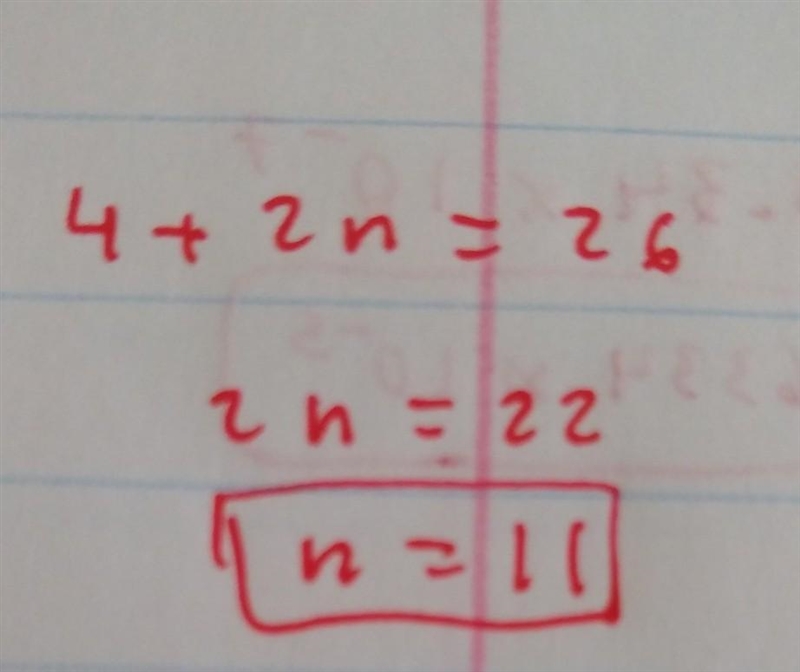 4 + 2n = 26
2n = 22
n = 11